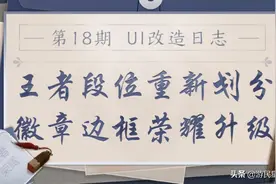 第18期 UI改造日志
王者段位重新划分
徽章边框荣耀升级